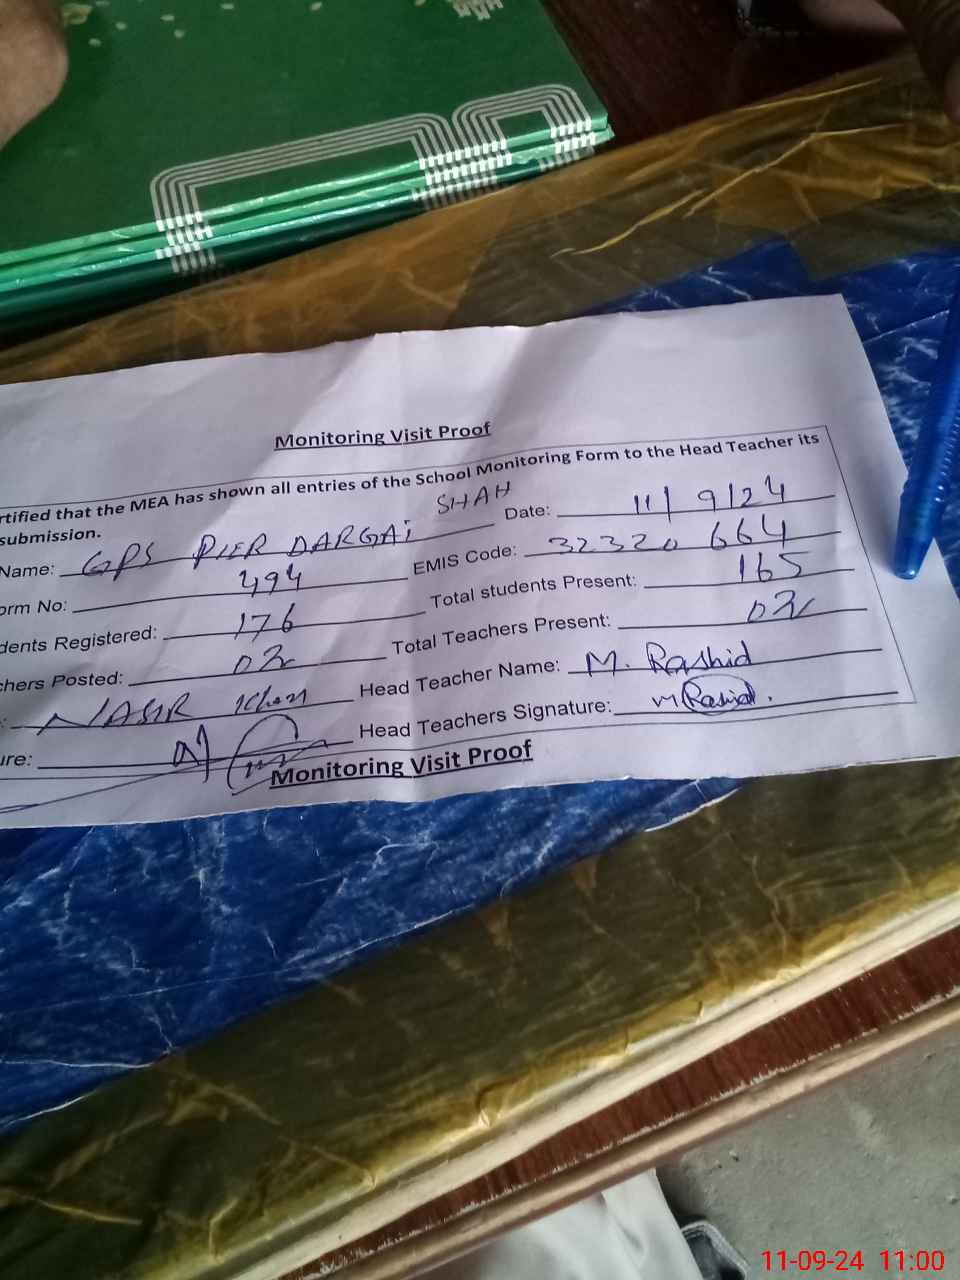 Monitoring Visit Proof
rtified that the MEA has shown all entries of the School Monitoring Form to the Head Teacher its
submission.
Name: GPS PIER DARGAI SHAH Date: 11/9/24
orm No: 494 EMIS Code: 32320 664
dents Registered: 176 Total students Present: 165
chers Posted: 02 Total Teachers Present: 02
: NASIR Khan Head Teacher Name: M. Rashid
ure: Head Teachers Signature: M Rashid.
Monitoring Visit Proof
11-09-24 11:00